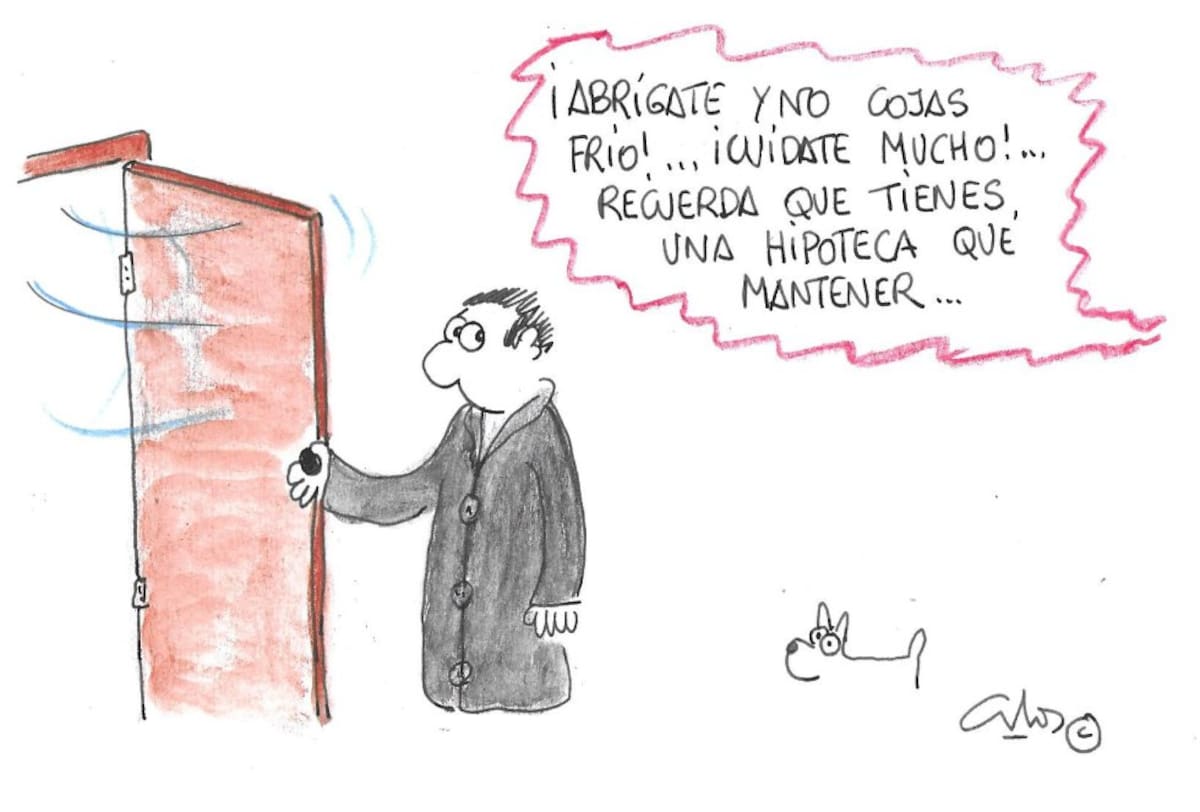 ¡ABRÍGATE Y NO COJAS
FRÍO!... ¡CUÍDATE MUCHO!...
RECUERDA QUE TIENES,
UNA HIPOTECA QUE
MANTENER...
©